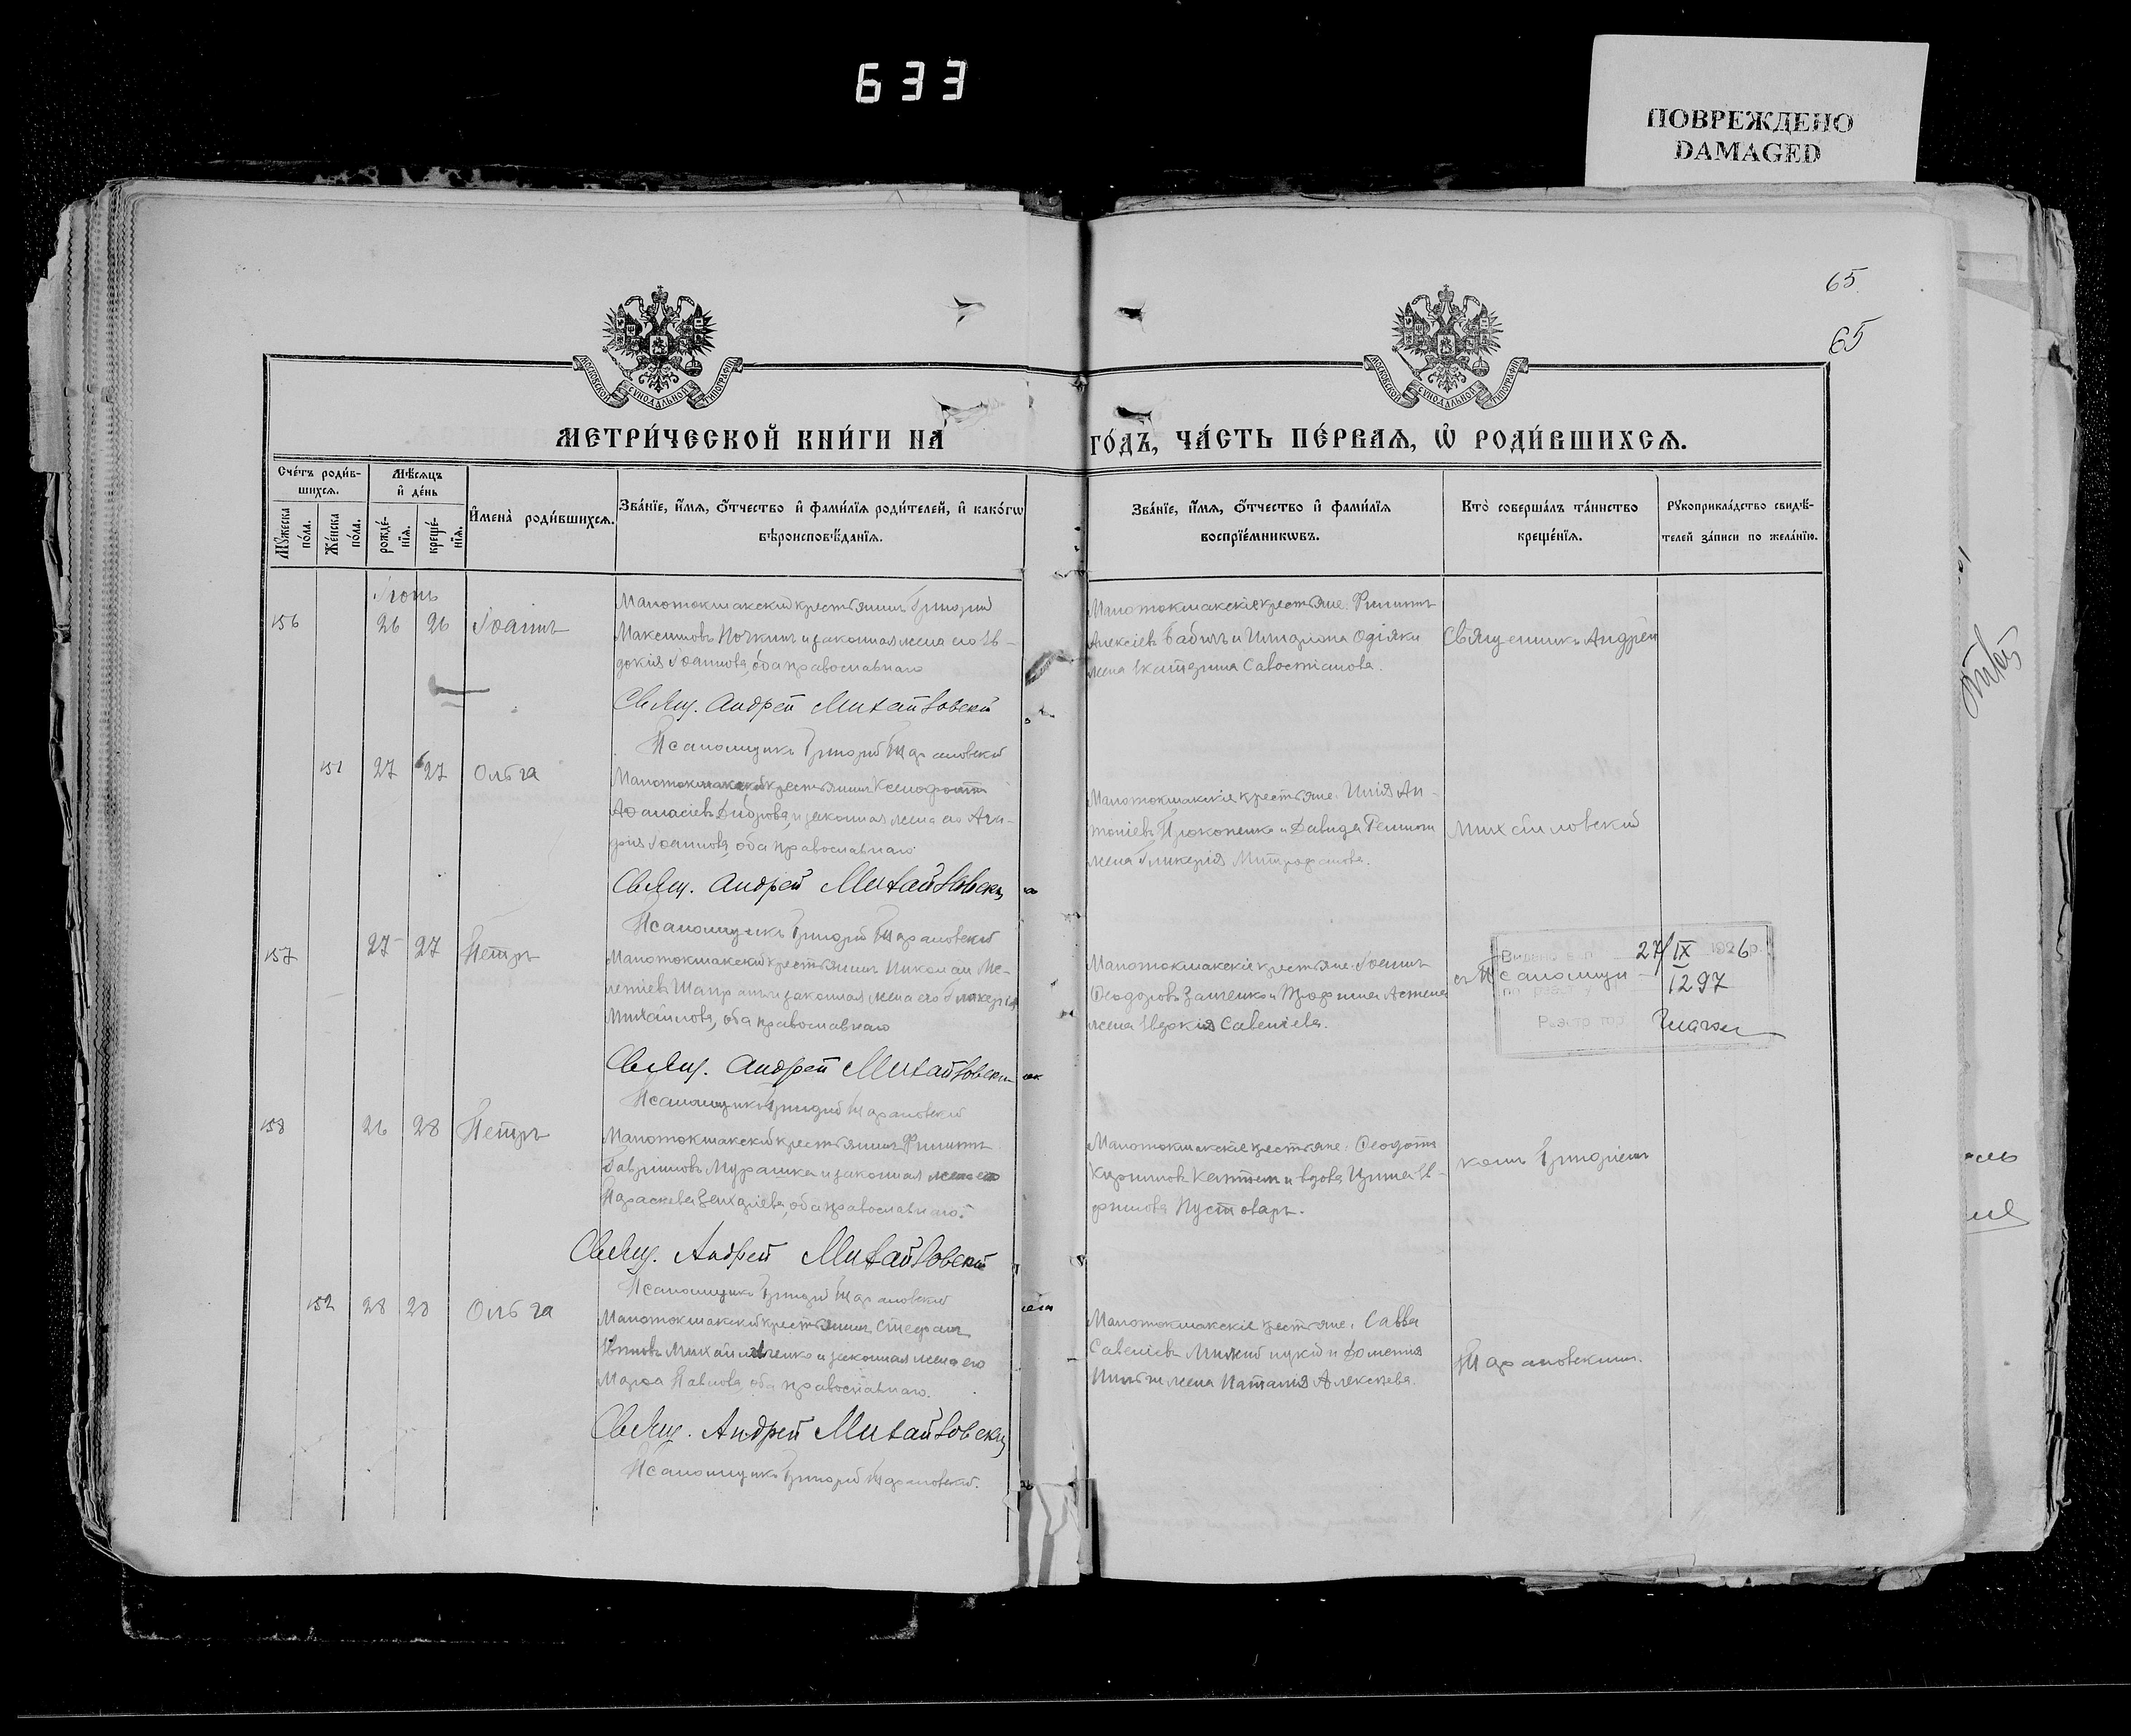 633
ПОВРЕЖДЕНО
DAMAGED
65
65
МОСКОВСКОЙ СѴНОДАЛЬНОЙ ТИПОГРАФІИ
МОСКОВСКОЙ СѴНОДАЛЬНОЙ ТИПОГРАФІИ
МЕТРИ́ЧЕСКОЙ КНИ́ГИ НА
ГО́ДЪ, ЧА́СТЬ ПЕ́РВАЯ, Ѽ РОДИ́ВШИХСЯ.
Сче́тъ роди́в-
шихся.
Мѣ́сяцъ
и҆ де́нь
Мꙋ́жеска
по́ла.
Же́нска
по́ла.
рожде́-
нїя.
креще́-
нїя.
И҆мена̀ роди́вшихся.
Зва́нїе, и҆́мя, ѻ҆́тчество и҆ фами́лїя роди́телей, и҆ како́гѡ
вѣроисповѣ́данїя.
Зва́нїе, и҆́мя, ѻ҆́тчество и҆ фами́лїя
воспрїе́мникѡвъ.
Кто̀ соверша́лъ та́инство
креще́нїя.
Рꙋкоприкла́дство свидѣ́-
телей за́писи по жела́нїю.
Іюнь
156 26 26 Іоаннъ
Малотокмакскій крестьянинъ Григорій
Максимовъ Ночкинъ и законная жена его Ев-
докія Іоаннова, оба православнаго
Свящ. Андрей Михайловскій
Псаломщикъ Григорій Тарановскій
Малотокмакскіе крестьяне: Филиппъ
Алексіевъ Бабичъ и
жена Екатерина Савостіанова.
Священникъ Андрей
151 27 27 Ольга
Малотокмакскій крестьянинъ Ксенофонтъ
Аѳанасіевъ Диброва и законная жена его Ага-
фія Іоаннова, оба православнаго
Свящ. Андрей Михайловскій
Псаломщикъ Григорій Тарановскій
Малотокмакскіе крестьяне: Илія Ан-
тоніевъ Прокопенко и Давида
жена Гликерія Митрофанова.
Михайловскій
157 27 27 Петръ
Малотокмакскій крестьянинъ Николай Ме-
летіевъ и законная жена его Гликерія
Михайлова, оба православнаго
Свящ. Андрей Михайловскій
Псаломщикъ Григорій Тарановскій
Малотокмакскіе крестьяне: Іоаннъ
Ѳеодоровъ и Трофима
жена Евдокія Савеліева.
съ Псаломщи-
27/IX 1926 р.
1297
158 26 28 Петръ
Малотокмакскій крестьянинъ Филиппъ
Гавріиловъ Мурашка и законная жена его
Параскева Захаріева, оба православнаго.
Свящ. Андрей Михайловскій
Псаломщикъ Григорій Тарановскій
Малотокмакскіе крестьяне: Ѳеодотъ
Кирилловъ и вдова Ирина Е-
фимова Пустоваръ.
комъ Григоріемъ
152 28 28 Ольга
Малотокмакскій крестьянинъ Стефанъ
Михайличенко и законная жена его
Марѳа Павлова, оба православнаго.
Свящ. Андрей Михайловскій
Псаломщикъ Григорій Тарановскій.
Малотокмакскіе крестьяне: Савва
Савеліевъ и Дометія
жена Наталія Алексѣева.
Тарановскимъ.